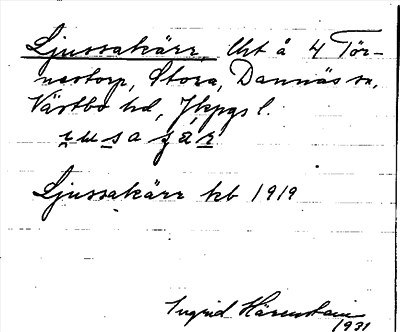 Ljussakärr, Urt å 4 Tör-
nestorp, Stora, Dannäs sn,
Västbo hd, Jkpgs l.
Ljussakärr kb 1919
Ingrid
1931